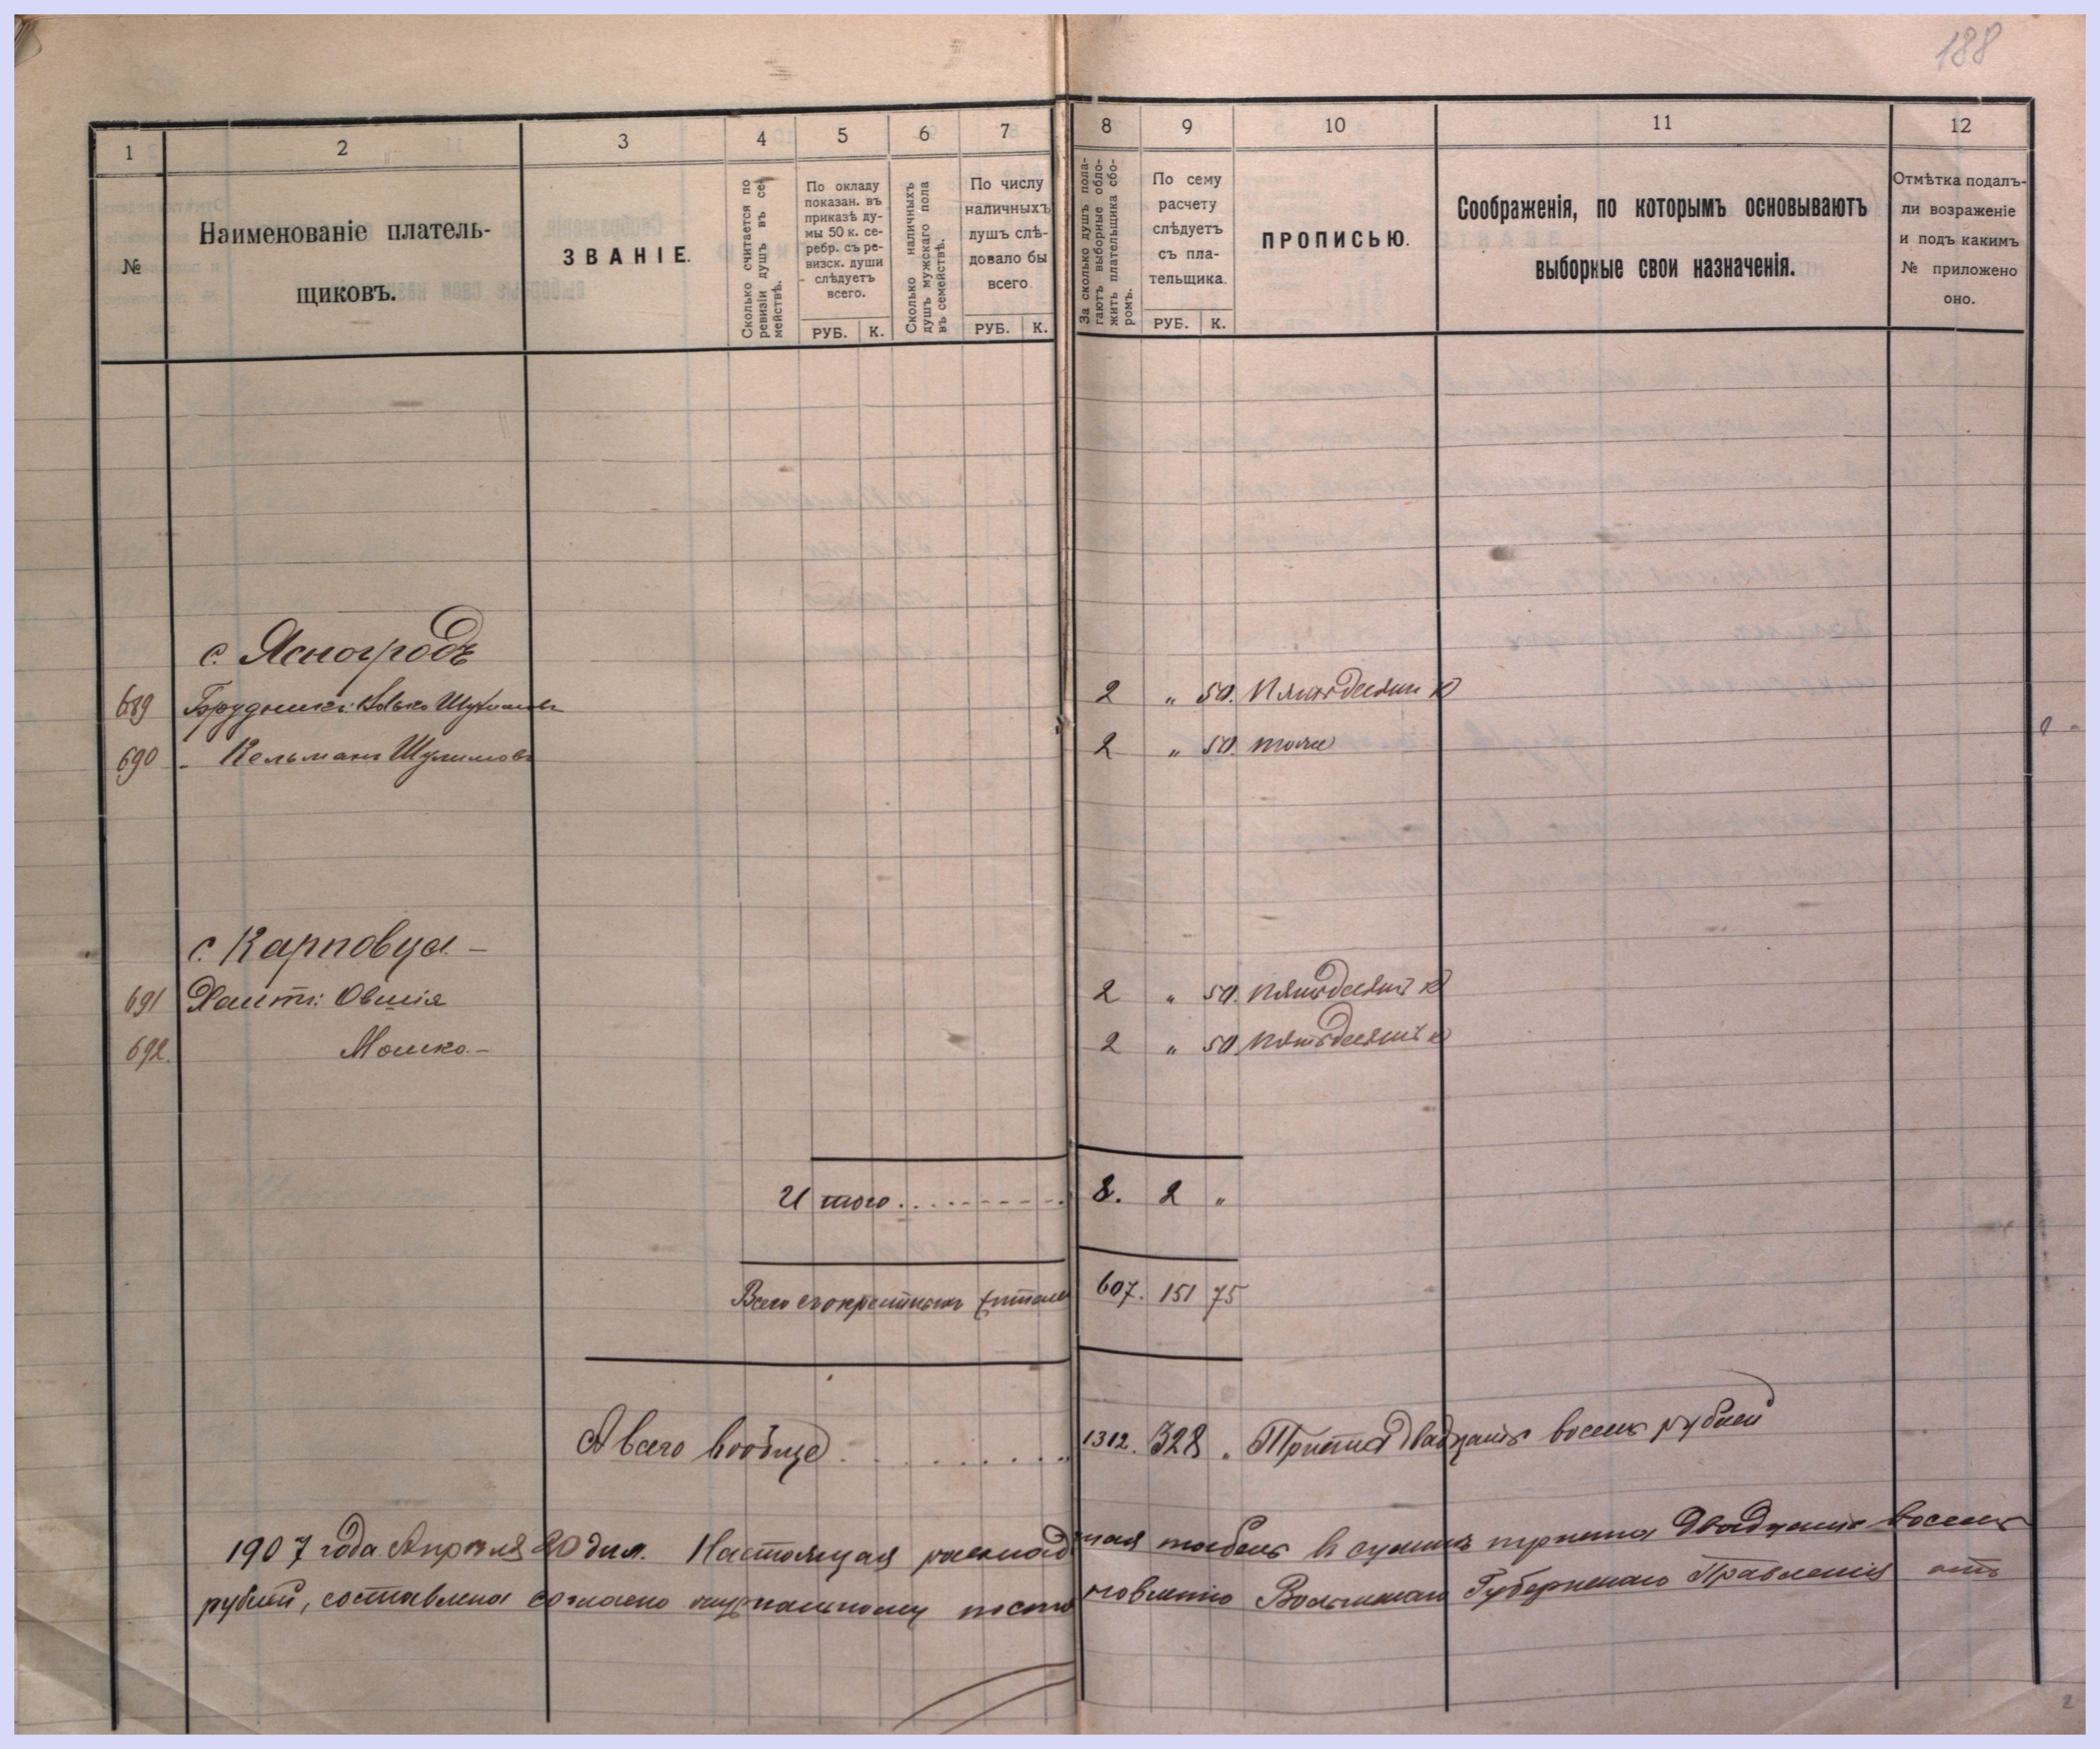 188
1 2 3 4 5 6 7 8 9 10 11 12
№
Наименованіе платель-
щиковъ.
ЗВАНІЕ.
Сколько считается по
ревизіи душъ въ се-
мействѣ.
По окладу
показан. въ
приказѣ ду-
мы 50 к. се-
ребр. съ ре-
визск. души
слѣдуетъ
всего.
РУБ. К.
Сколько наличныхъ
душъ мужского пола
въ семействѣ.
По числу
наличныхъ
душъ слѣ-
довало бы
всего.
РУБ. К.
За сколько душъ пола-
гаютъ выборные обло-
жить плательщика сбо-
ромъ.
По сему
расчету
слѣдуетъ
съ пла-
тельщика.
РУБ. К.
ПРОПИСЬЮ.
Соображенія, по которымъ основываютъ
выборные свои назначенія.
Отмѣтка подалъ-
ли возраженіе
и подъ какимъ
№ приложено
оно.
с. Ясногродъ
689 2 „ 50. Пятьдесятъ к
690 - Кельманъ Шулимовъ 2 „ 50. тоже
с. Карповца -
691 Овшія 2 „ 50. Пятьдесятъ к
692. Мошко - 2 „ 50. Пятьдесятъ к
Итого . . . . 8. 2 „
Всего 607. 151 75
А всего вообще . . . . . . . . 1312. 328 „ Триста двадцать восемь рублей
1907 года Апрѣля 20 дня. Настоящая раскладочная табель въ суммѣ триста двадцать восемь
рублей, составлена согласно журнальному постановленію Волынскаго Губернскаго Правленія отъ
2